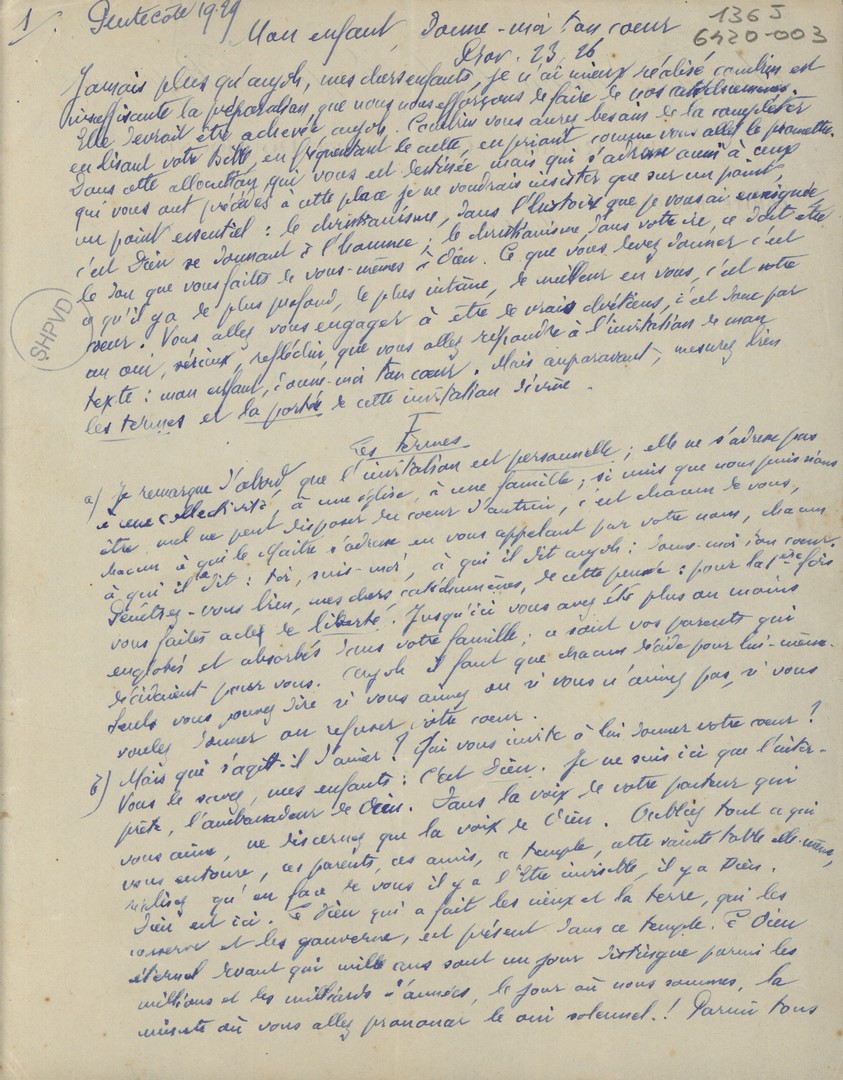 1 Pentecôte 1929
136 J
6420-003
Mon enfant, donne-moi ton coeur
Prov. 23. 26
Jamais plus qu'aujdh, mes chers enfants, je n'ai mieux réalisé combien est
insuffisante la préparation que nous nous efforçons de faire de nos catéchumènes.
Elle devrait être achevée aujdh. Combien vous aurez besoin de la compléter
en lisant votre Bible, en fréquentant le culte, en priant comme vous allez le promettre.
Dans cette allocution qui vous est destinée mais qui s'adresse aussi à ceux
qui vous ont précédés à cette place je ne voudrais insister que sur un point,
un point essentiel : le christianisme, dans l'histoire que je vous ai enseignée,
c'est Dieu se donnant à l'homme ; le christianisme dans votre vie, ce doit être
le don que vous faites de vous-mêmes à Dieu. Ce que vous devez donner c'est
ce qu'il y a de plus profond, le plus intime, de meilleur en vous, c'est votre
coeur. Vous allez vous engager à être de vrais chrétiens, c'est donc par
un oui, sérieux, réfléchi, que vous allez répondre à l'invitation de mon
texte : mon enfant, donne-moi ton coeur. Mais auparavant, mesurez bien
les termes et la portée de cette invitation divine.
SHPVD
I
Les termes
a) Je remarque d'abord que l'invitation est personnelle ; elle ne s'adresse pas
à une collectivité, à une église, à une famille ; si unis que nous puissions
être nul ne peut disposer du coeur d'autrui, c'est chacun de vous,
chacun à qui le Maître s'adresse en vous appelant par votre nom, chacun
à qui il dit : toi, suis-moi, à qui il dit aujdh : donne-moi ton coeur.
Pénétrez-vous bien, mes chers catéchumènes, de cette pensée : pour la 1ère fois
vous faites acte de liberté. Jusqu'ici vous avez été plus ou moins
englobés et absorbés dans votre famille ; ce sont vos parents qui
décidaient pour vous. Aujdh il faut que chacun décide pour lui-même.
Seuls vous pouvez dire si vous aimez ou si vous n'aimez pas, si vous
voulez donner ou refuser votre coeur.
b) Mais qui s'agit-il d'aimer ? Qui vous invite à lui donner votre coeur ?
Vous le savez, mes enfants : c'est Dieu. Je ne suis ici que l'inter-
prète, l'ambassadeur de Dieu. Dans la voix de votre pasteur qui
vous aime, ne discernez que la voix de Dieu. Oubliez tout ce qui
vous entoure, ces parents, ces amis, ce temple, cette sainte table elle-même,
réalisez qu'en face de vous il y a l'Etre invisible, il y a Dieu.
Dieu est ici. Ce Dieu qui a fait les cieux et la terre, qui les
conserve et les gouverne, est présent dans ce temple. Ce Dieu
éternel devant qui mille ans sont un jour distingue parmi les
millions et les milliards d'années, le jour où nous sommes, la
minute où vous allez prononcer le oui solennel ! Parmi tous